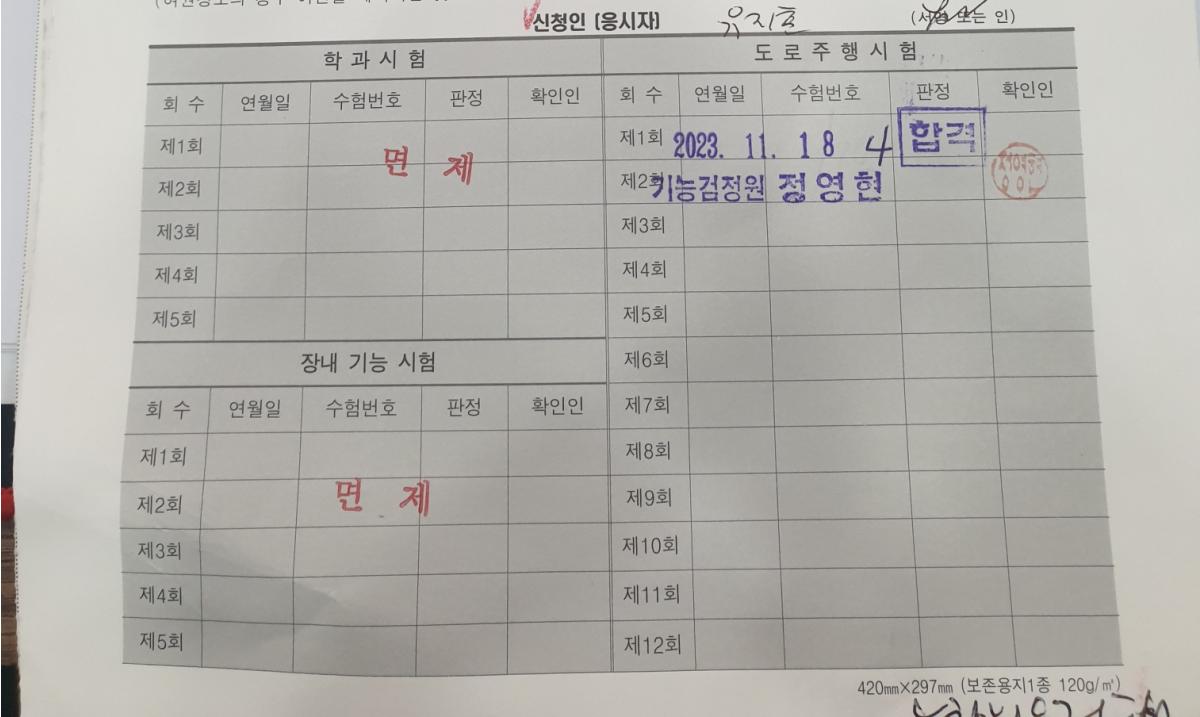 신청인 (응시자) 유지훈 (서명 또는 인)
학 과 시 험
회 수 연월일 수험번호 판정 확인인
제1회
면 제
제2회
제3회
제4회
제5회
장내 기능 시험
회 수 연월일 수험번호 판정 확인인
제1회
제2회 면 제
제3회
제4회
제5회
도 로 주 행 시 험
회 수 연월일 수험번호 판정 확인인
제1회 2023. 11. 18 4 합격
제2회 기능검정원 정영현
제3회
제4회
제5회
제6회
제7회
제8회
제9회
제10회
제11회
제12회
420㎜×297㎜ (보존용지1종 120g/㎡)